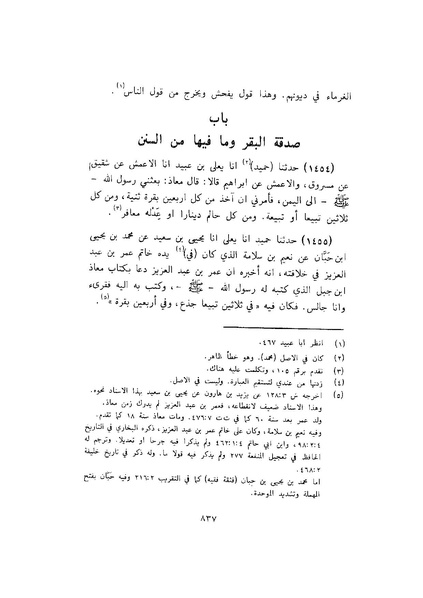 الغرماء في ديونهم. وهذا قول يفحش ويخرج من قول الناس(١).
باب
صدقة البقر وما فيها من السنن
(١٤٥٤) حدثنا (حميد)(٢) انا يعلى بن عبيد انا الاعمش عن شقيق
عن مسروق، والاعمش عن ابراهيم قالا: قال معاذ: بعثني رسول الله –
ﷺ – الى اليمن، فأمرني ان آخذ من كل اربعين بقرة ثنية، ومن كل
ثلاثين تبيعا أو تبيعة. ومن كل حالم دينارا او عَدْله معافر(٣).
(١٤٥٥) حدثنا حميد انا يعلى انا يحيى بن سعيد عن محمد بن يحيى
ابن حَبَّان عن نعيم بن سلامة الذي كان (في)(٤) يده خاتم عمر بن عبد
العزيز في خلافته، انه أخبره ان عمر بن عبد العزيز دعا بكتاب معاذ
ابن جبل الذي كتبه له رسول الله – ﷺ –، وكتب به اليه فقرىء
وانا جالس. فكان فيه « في ثلاثين تبيعا جذع، وفي أربعين بقرة »(٥).
(١) انظر ابا عبيد ٤٦٧.
(٢) كان في الاصل (محمد). وهو خطأ ظاهر.
(٣) تقدم برقم ١٠٥، وتكلمت عليه هناك.
(٤) زدتها من عندي لتستقيم العبارة. وليست في الاصل.
(٥) اخرجه ش ١٢٨:٣ عن يزيد بن هارون عن يحيى بن سعيد بهذا الاسناد نحوه.
وهذا الاسناد ضعيف لانقطاعه، فعمر بن عبد العزيز لم يدرك زمن معاذ.
ولد عمر بعد سنة ٦٠ كما في ت ت ٤٧٦:٧. ومات معاذ سنة ١٨ كما تقدم.
وفيه نعيم بن سلامة، وكان على خاتم عمر بن عبد العزيز، ذكره البخاري في التاريخ
٩٨:٢:٤، وابن ابي حاتم ٤٦٢:١:٤ ولم يذكرا فيه جرحا او تعديلا. وترجم له
الحافظ في تعجيل المنفعة ٢٧٧ ولم يذكر فيه قولا ما. وله ذكر في تاريخ خليفة
٤٦٨:٢.
اما محمد بن يحيى بن حبان (فثقة فقيه) كما في التقريب ٢١٦:٢ وفيه حَبَّان بفتح
المهملة وتشديد الموحدة.
٨٣٧